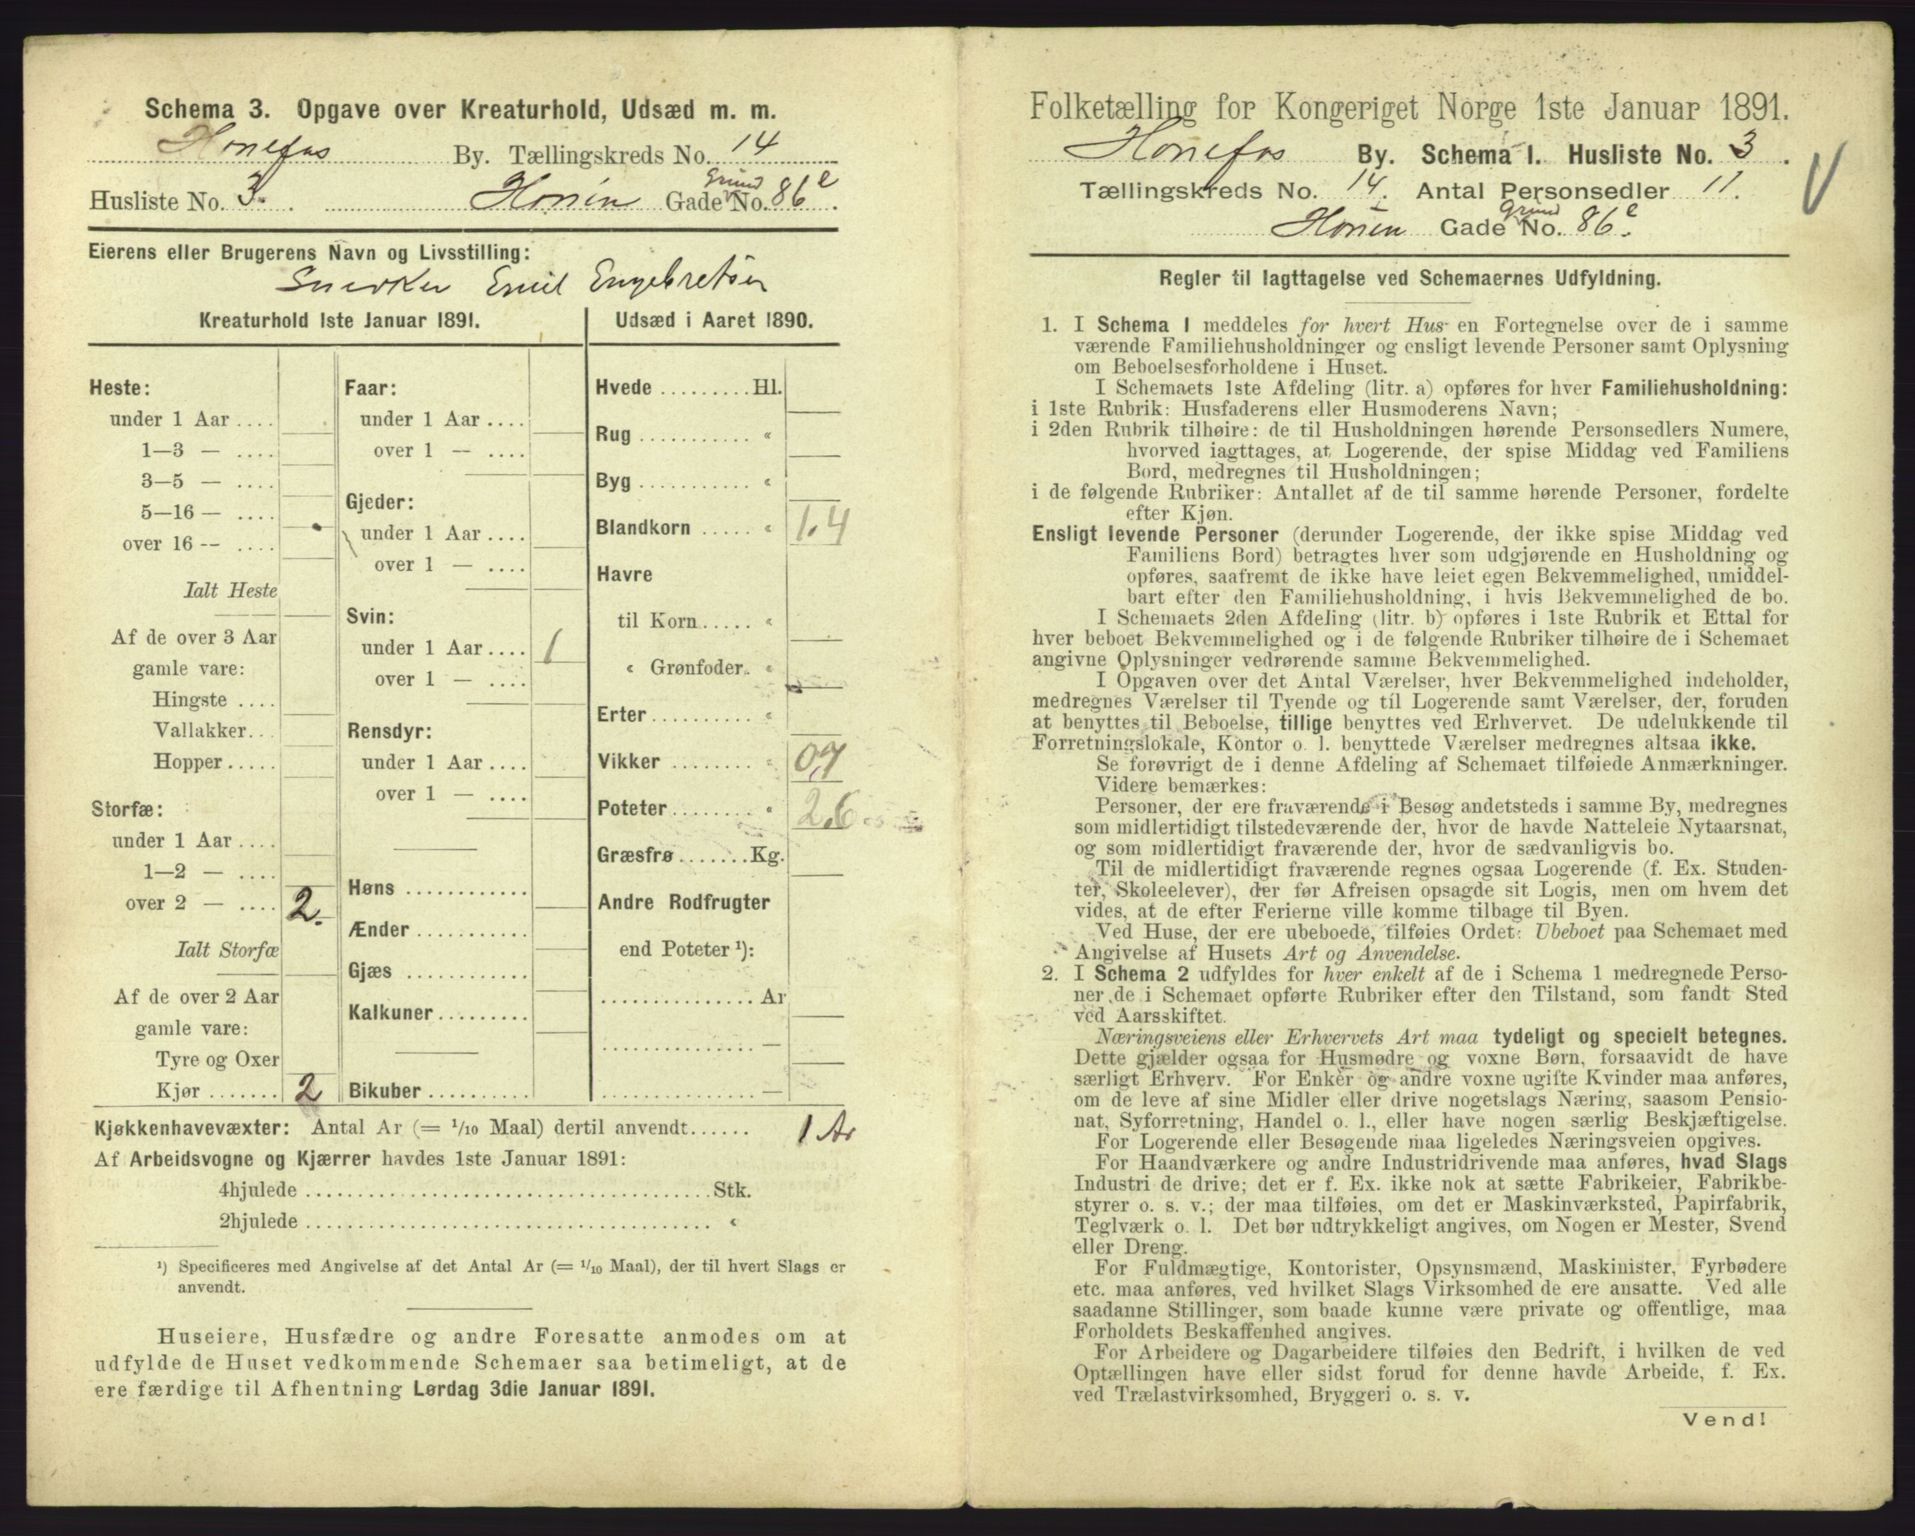 Schema 3. Opgave over Kreaturhold, Udsæd m. m.
Hønefos By. Tællingskreds No. 14
Husliste No. 3. Hønen Gade Grund No. 86e.
Eierens eller Brugerens Navn og Livsstilling:
Snedker Emil Engebretsen
Kreaturhold 1ste Januar 1891.
Heste:
under 1 Aar ....
1—3 — ....
3—5 — ....
5—16 — ....
over 16 -- ....
Ialt Heste
Af de over 3 Aar
gamle vare:
Hingste ....
Vallakker...
Hopper.....
Storfæ:
under 1 Aar ....
1—2 — ....
over 2 — .... 2.
Ialt Storfæ
Af de over 2 Aar
gamle vare:
Tyre og Oxer
Kjør ....... 2
Faar:
under 1 Aar ....
over 1 — ....
Gjeder:
under 1 Aar ....
over 1 — ....
Svin:
under 1 Aar .... 1
over 1 — ....
Rensdyr:
under 1 Aar ....
over 1 — ....
Høns ............
Ænder ...........
Gjæs ............
Kalkuner.........
Bikuber ..........
Udsæd i Aaret 1890.
Hvede .........Hl.
Rug ........... «
Byg ........... «
Blandkorn ..... « 1,4
Havre
til Korn..... «
« Grønfoder.. «
Erter.......... «
Vikker ........ « 0,7
Poteter........ « 2,6
Græsfrø.......Kg.
Andre Rodfrugter
end Poteter ¹):
............... Ar
............... —
............... —
Kjøkkenhavevæxter: Antal Ar (= 1/10 Maal) dertil anvendt...... 1 Ar
Af Arbeidsvogne og Kjærrer havdes 1ste Januar 1891:
4hjulede ....................................... Stk.
2hjulede ....................................... «
¹) Specificeres med Angivelse af det Antal Ar (= 1/10 Maal), der til hvert Slags er
anvendt.
Huseiere, Husfædre og andre Foresatte anmodes om at
udfylde de Huset vedkommende Schemaer saa betimeligt, at de
ere færdige til Afhentning Lørdag 3die Januar 1891.
Folketælling for Kongeriget Norge 1ste Januar 1891.
Hønefos By. Schema 1. Husliste No. 3.
Tællingskreds No. 14. Antal Personsedler 11.
Hønen Gade Grund No. 86e.
V
Regler til Iagttagelse ved Schemaernes Udfyldning.
1. I Schema 1 meddeles for hvert Hus en Fortegnelse over de i samme
værende Familiehusholdninger og ensligt levende Personer samt Oplysning
om Beboelsesforholdene i Huset.
I Schemaets 1ste Afdeling (litr. a) opføres for hver Familiehusholdning:
i 1ste Rubrik: Husfaderens eller Husmoderens Navn;
i 2den Rubrik tilhøire: de til Husholdningen hørende Personsedlers Numere,
hvorved iagttages, at Logerende, der spise Middag ved Familiens
Bord, medregnes til Husholdningen;
i de følgende Rubriker: Antallet af de til samme hørende Personer, fordelte
efter Kjøn.
Ensligt levende Personer (derunder Logerende, der ikke spise Middag ved
Familiens Bord) betragtes hver som udgjørende en Husholdning og
opføres, saafremt de ikke have leiet egen Bekvemmelighed, umiddel-
bart efter den Familiehusholdning, i hvis Bekvemmelighed de bo.
I Schemaets 2den Afdeling (litr. b) opføres i 1ste Rubrik et Ettal for
hver beboet Bekvemmelighed og i de følgende Rubriker tilhøire de i Schemaet
angivne Oplysninger vedrørende samme Bekvemmelighed.
I Opgaven over det Antal Værelser, hver Bekvemmelighed indeholder,
medregnes Værelser til Tyende og til Logerende samt Værelser, der, foruden
at benyttes til Beboelse, tillige benyttes ved Erhvervet. De udelukkende til
Forretningslokale, Kontor o. l. benyttede Værelser medregnes altsaa ikke.
Se forøvrigt de i denne Afdeling af Schemaet tilføiede Anmærkninger.
Videre bemærkes:
Personer, der ere fraværende i Besøg andetsteds i samme By, medregnes
som midlertidigt tilstedeværende der, hvor de havde Natteleie Nytaarsnat,
og som midlertidigt fraværende der, hvor de sædvanligvis bo.
Til de midlertidigt fraværende regnes ogsaa Logerende (f. Ex. Studen-
ter, Skoleelever), der før Afreisen opsagde sit Logis, men om hvem det
vides, at de efter Ferierne ville komme tilbage til Byen.
Ved Huse, der ere ubeboede, tilføies Ordet: Ubeboet paa Schemaet med
Angivelse af Husets Art og Anvendelse.
2. I Schema 2 udfyldes for hver enkelt af de i Schema 1 medregnede Perso-
ner de i Schemaet opførte Rubriker efter den Tilstand, som fandt Sted
ved Aarsskiftet.
Næringsveiens eller Erhvervets Art maa tydeligt og specielt betegnes.
Dette gjælder ogsaa for Husmødre og voxne Børn, forsaavidt de have
særligt Erhverv. For Enker og andre voxne ugifte Kvinder maa anføres,
om de leve af sine Midler eller drive nogetslags Næring, saasom Pensio-
nat, Syforretning, Handel o. l., eller have nogen særlig Beskjæftigelse.
For Logerende eller Besøgende maa ligeledes Næringsveien opgives.
For Haandværkere og andre Industridrivende maa anføres, hvad Slags
Industri de drive; det er f. Ex. ikke nok at sætte Fabrikeier, Fabrikbe-
styrer o. s. v.; der maa tilføies, om det er Maskinværksted, Papirfabrik,
Teglværk o. l. Det bør udtrykkeligt angives, om Nogen er Mester, Svend
eller Dreng.
For Fuldmægtige, Kontorister, Opsynsmænd, Maskinister, Fyrbødere
etc. maa anføres, ved hvilket Slags Virksomhed de ere ansatte. Ved alle
saadanne Stillinger, som baade kunne være private og offentlige, maa
Forholdets Beskaffenhed angives.
For Arbeidere og Dagarbeidere tilføies den Bedrift, i hvilken de ved
Optællingen have eller sidst forud for denne havde Arbeide, f. Ex.
ved Trælastvirksomhed, Bryggeri o. s. v.
Vend!